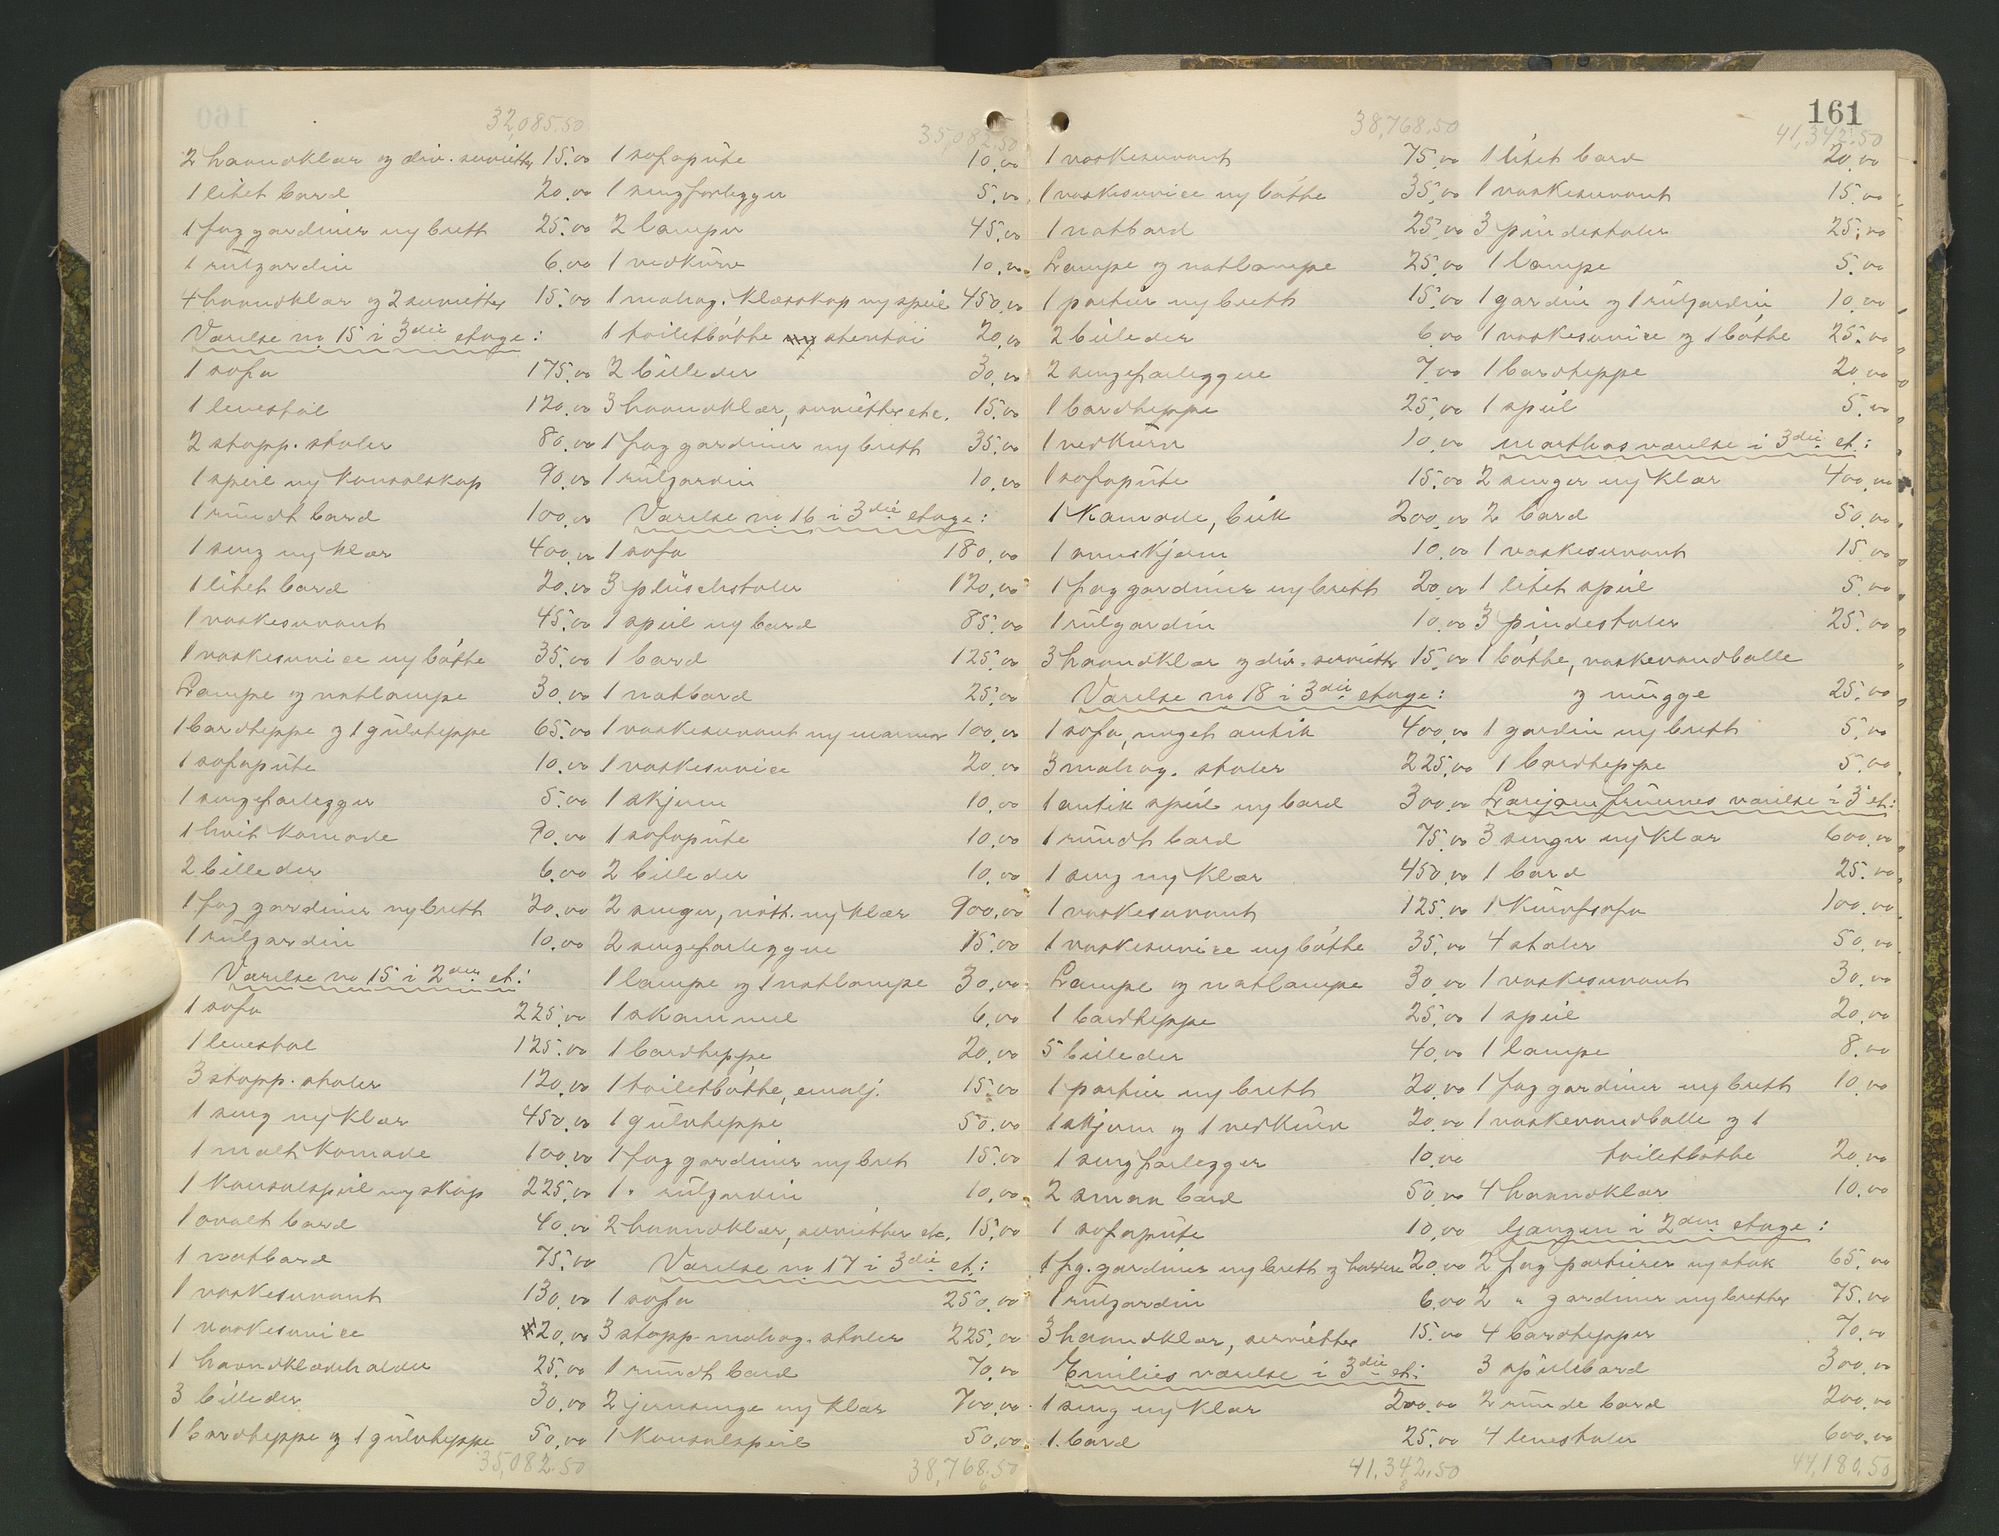 32,085.50
2 haandklær og div. servietter 15.00
1 litet bord 20.00
1 fag gardiner m/brett 25.00
1 rulgardin 6.00
4 haandklær og 2 servietter 15.00
Værelse no 15 i 3die etage:
1 sofa 175.00
1 lenestol 120.00
2 stopp. stoler 80.00
1 speil m/konsolskap 90.00
1 rundt bord 100.00
1 seng m/klær 400.00
1 litet bord 20.00
1 vaskeservant 45.00
1 vaskeservice m/bøtte 35.00
Lampe og natlampe 30.00
1 bordteppe og 1 gulvteppe 65.00
1 sofapute 10.00
1 sengeforlegger 5.00
1 hvit komode 90.00
2 billeder 6.00
1 fag gardiner m/brett 20.00
1 rulgardin 10.00
Værelse no 15 i 2den et:
1 sofa 225.00
1 lenestol 125.00
3 stopp. stoler 120.00
1 seng m/klær 450.00
1 malt komode 100.00
1 konsolspeil m/skap 225.00
1 ovalt bord 40.00
1 natbord 75.00
1 vaskeservant 130.00
1 vaskeservice 20.00
1 haandklædeholder 25.00
3 billeder 30.00
1 bordteppe og 1 gulvteppe 50.00
35,082.50
35,082.50
1 sofapute 10.00
1 sengforlegger 5.00
2 lamper 45.00
1 vedkurv 10.00
1 mahog. klæsskap m/speil 450.00
1 toiletbøtte stentøi 20.00
2 billeder 30.00
3 haandklær, servietter etc. 15.00
1 fag gardiner m/brett 35.00
1 rulgardin 10.00
Værelse no 16 i 3die etage:
1 sofa 180.00
3 plüschstoler 120.00
1 speil m/bord 85.00
1 bord 125.00
1 natbord 25.00
1 vaskeservant m/marmor 100.00
1 vaskeservice 20.00
1 skjerm 10.00
1 sofapute 10.00
2 billeder 10.00
2 senger, nøtt. m/klær 900.00
2 sengeforleggere 15.00
1 lampe og 1 natlampe 30.00
1 skammel 6.00
1 bordteppe 20.00
1 toiletbøtte, emalj. 15.00
1 gulvteppe 50.00
1 fag gardiner m/bret 15.00
1 rulgardin 10.00
2 haandklær, servietter etc. 15.00
Værelse no 17 i 3die et.:
1 sofa 250.00
3 stopp. mahog. stoler 225.00
1 rundt bord 70.00
2 jernsenge m/klær 700.00
1 konsolspeil 50.00
38,768.50
38,768.50
1 vaskeservant 75.00
1 vaskeservice m/bøtte 35.00
1 natbord 25.00
Lampe og natlampe 25.00
1 portier m/brett 15.00
2 billeder 6.00
2 sengeforleggere 7.00
1 bordteppe 25.00
1 vedkurv 10.00
1 sofapute 15.00
1 komode, bjk 200.00
1 ovnskjerm 10.00
1 fag gardiner m/brett 20.00
1 rulgardin 10.00
3 haandklær og div. servietter 15.00
Værelse no 18 i 3die etage:
1 sofa, meget antik 400.00
3 mahog. stoler 225.00
1 antik speil m/bord 300.00
1 rundt bord 75.00
1 seng m/klær 450.00
1 vaskeservant 125.00
1 vaskeservice m/bøtte 35.00
Lampe og natlampe 30.00
1 bordteppe 25.00
5 billeder 40.00
1 portier m/brett 20.00
1 skjerm og 1 vedkurv 20.00
1 sengforlegger 10.00
2 smaa bord 50.00
1 sofapute 10.00
1 fg. gardiner m/brett og 20.00
1 rulgardin 6.00
3 haandklær, servietter 15.00
Emilies værelse i 3die et:
1 seng m/klær 200.00
1 bord 25.00
41,342.50
161
41,342.50
1 litet bord 20.00
1 vaskeservant 15.00
3 pindestoler 25.00
1 lampe 5.00
1 gardin og 1 rulgardin 10.00
1 vaskeservice og 1 bøtte 25.00
1 bordteppe 20.00
1 speil 5.00
Marthas værelse i 3die et:
2 senger m/klær 400.00
2 bord 50.00
1 vaskeservant 15.00
1 litet speil 5.00
3 pindestoler 25.00
1 bøtte, vaskevandbolle
og mugge 25.00
1 gardin m/brett 5.00
1 bordteppe 5.00
Lærejomfruernes værelse i 3 et:
3 senger m/klær 600.00
1 bord 25.00
1 kurvsofa 100.00
4 stoler 50.00
1 vaskeservant 30.00
1 speil 20.00
1 lampe 8.00
1 fag gardiner m/brett 10.00
1 vaskevandbolle og 1
toiletbøtte 20.00
4 haandklær 10.00
Gangen i 2den etage:
2 fag portierer m/stok 65.00
2 " gardiner m/bretter 75.00
4 bordtepper 70.00
3 spillebord 300.00
2 runde bord 200.00
4 lenestoler 600.00
44,180.50